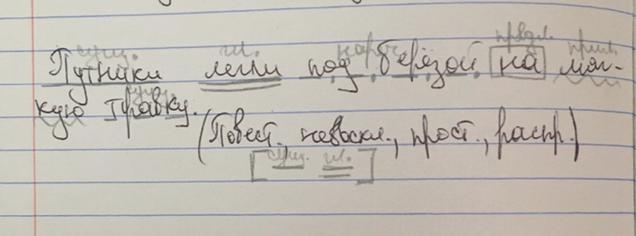 сущ. гл. нареч. предл. прил.
Путники легли под берёзой на мяг-
сущ.
кую травку.
(Повест., невоскл., прост., распр.)
[сущ. гл.]